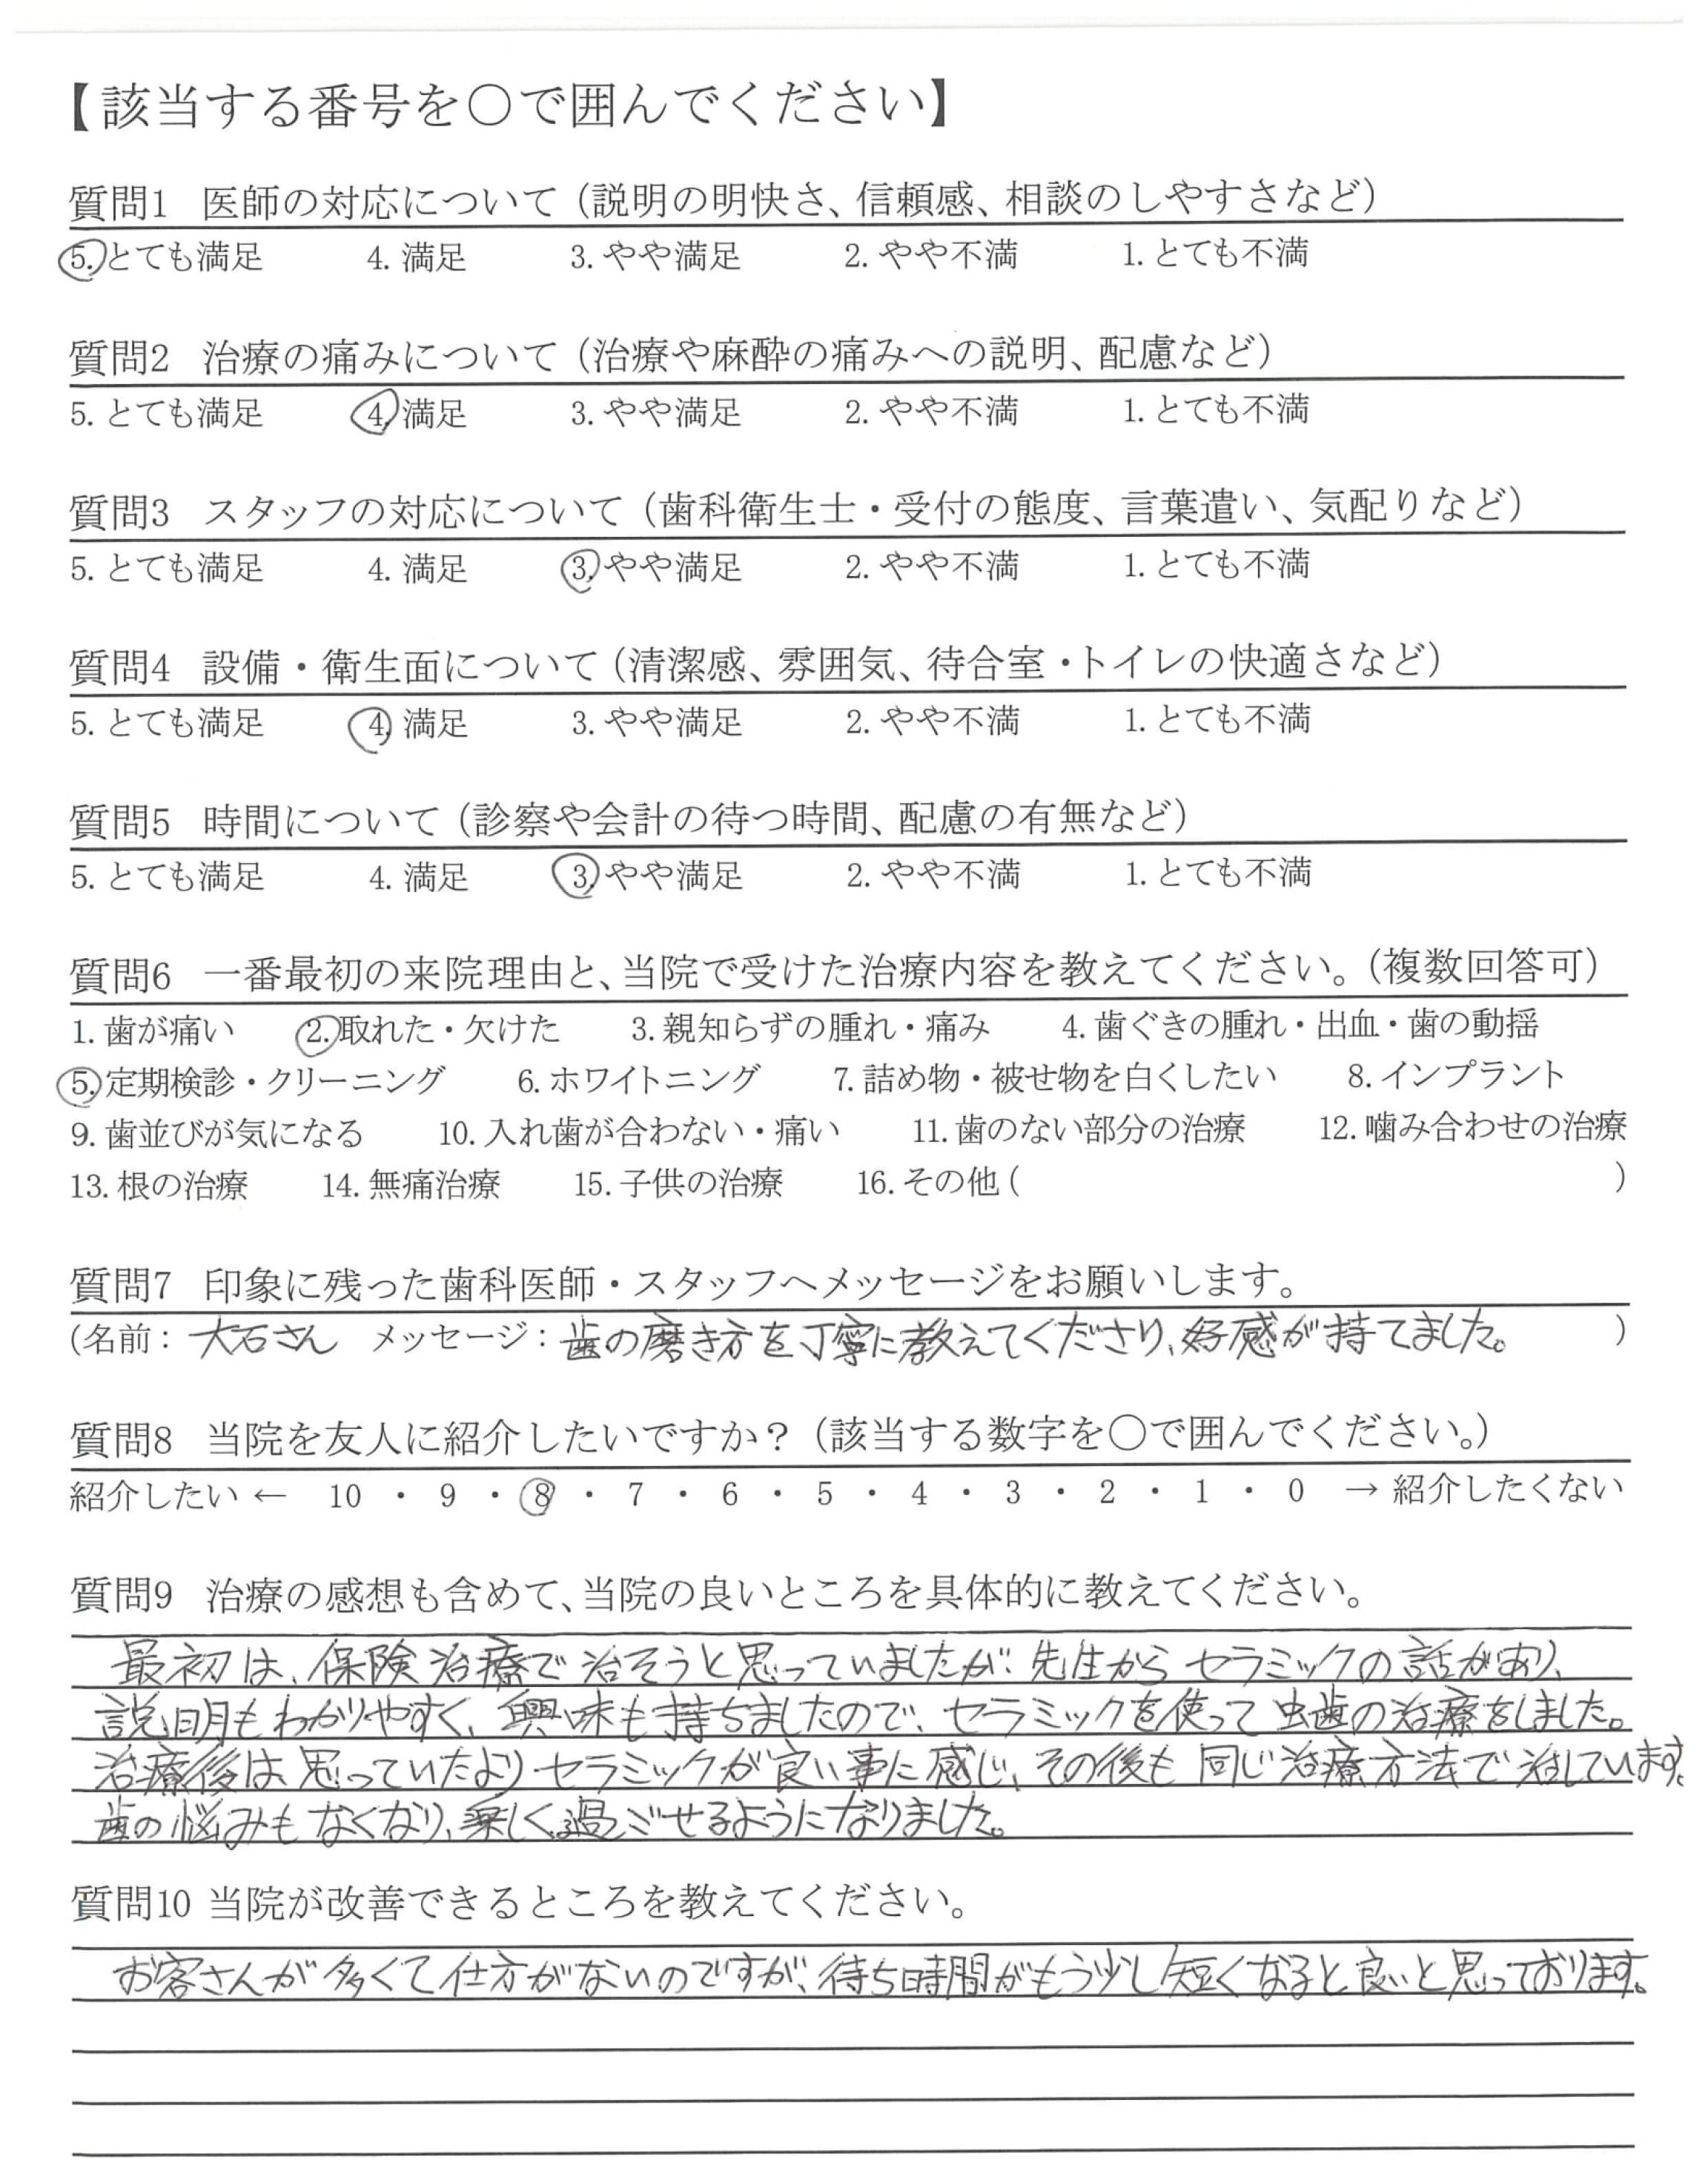 【該当する番号を○で囲んでください】
質問1 医師の対応について（説明の明快さ、信頼感、相談のしやすさなど）
5.とても満足 4.満足 3.やや満足 2.やや不満 1.とても不満
質問2 治療の痛みについて（治療や麻酔の痛みへの説明、配慮など）
5.とても満足 4.満足 3.やや満足 2.やや不満 1.とても不満
質問3 スタッフの対応について（歯科衛生士・受付の態度、言葉遣い、気配りなど）
5.とても満足 4.満足 3.やや満足 2.やや不満 1.とても不満
質問4 設備・衛生面について（清潔感、雰囲気、待合室・トイレの快適さなど）
5.とても満足 4.満足 3.やや満足 2.やや不満 1.とても不満
質問5 時間について（診察や会計の待つ時間、配慮の有無など）
5.とても満足 4.満足 3.やや満足 2.やや不満 1.とても不満
質問6 一番最初の来院理由と、当院で受けた治療内容を教えてください。（複数回答可）
1.歯が痛い 2.取れた・欠けた 3.親知らずの腫れ・痛み 4.歯ぐきの腫れ・出血・歯の動揺
5.定期検診・クリーニング 6.ホワイトニング 7.詰め物・被せ物を白くしたい 8.インプラント
9.歯並びが気になる 10.入れ歯が合わない・痛い 11.歯のない部分の治療 12.噛み合わせの治療
13.根の治療 14.無痛治療 15.子供の治療 16.その他（ ）
質問7 印象に残った歯科医師・スタッフへメッセージをお願いします。
（名前：大石さん メッセージ：歯の磨き方を丁寧に教えてくださり、好感が持てました。）
質問8 当院を友人に紹介したいですか？（該当する数字を○で囲んでください。）
紹介したい ← 10 ・ 9 ・ 8 ・ 7 ・ 6 ・ 5 ・ 4 ・ 3 ・ 2 ・ 1 ・ 0 → 紹介したくない
質問9 治療の感想も含めて、当院の良いところを具体的に教えてください。
最初は、保険治療で治そうと思っていましたが、先生からセラミックの話があり、
説明もわかりやすく、興味も持ちましたので、セラミックを使って虫歯の治療をしました。
治療後は思っていたよりセラミックが良い事に感じ、その後も同じ治療方法で治しています。
歯の悩みもなくなり、楽しく過ごせるようになりました。
質問10 当院が改善できるところを教えてください。
お客さんが多くて仕方がないのですが、待ち時間がもう少し短くなると良いと思っております。